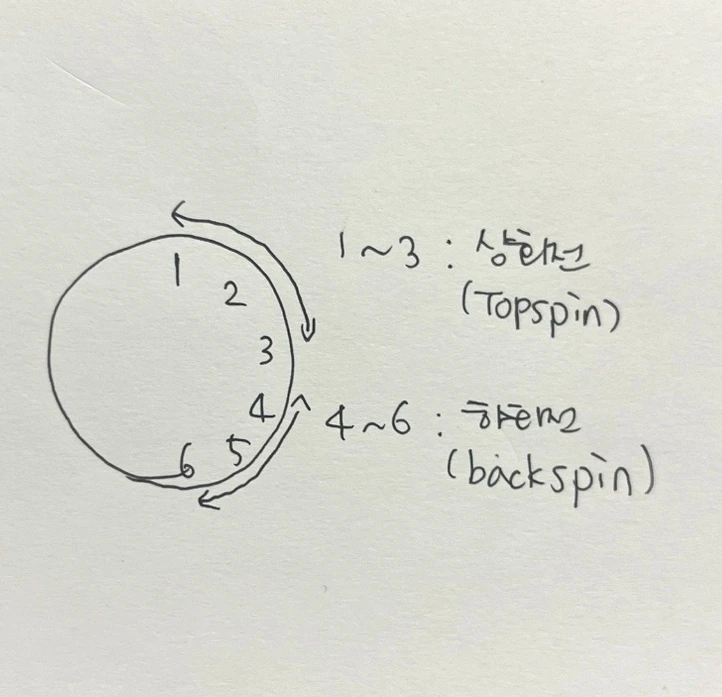 1
2
3
4
5
6
1~3 : 상회전
(Topspin)
4~6 : 하회전
(backspin)